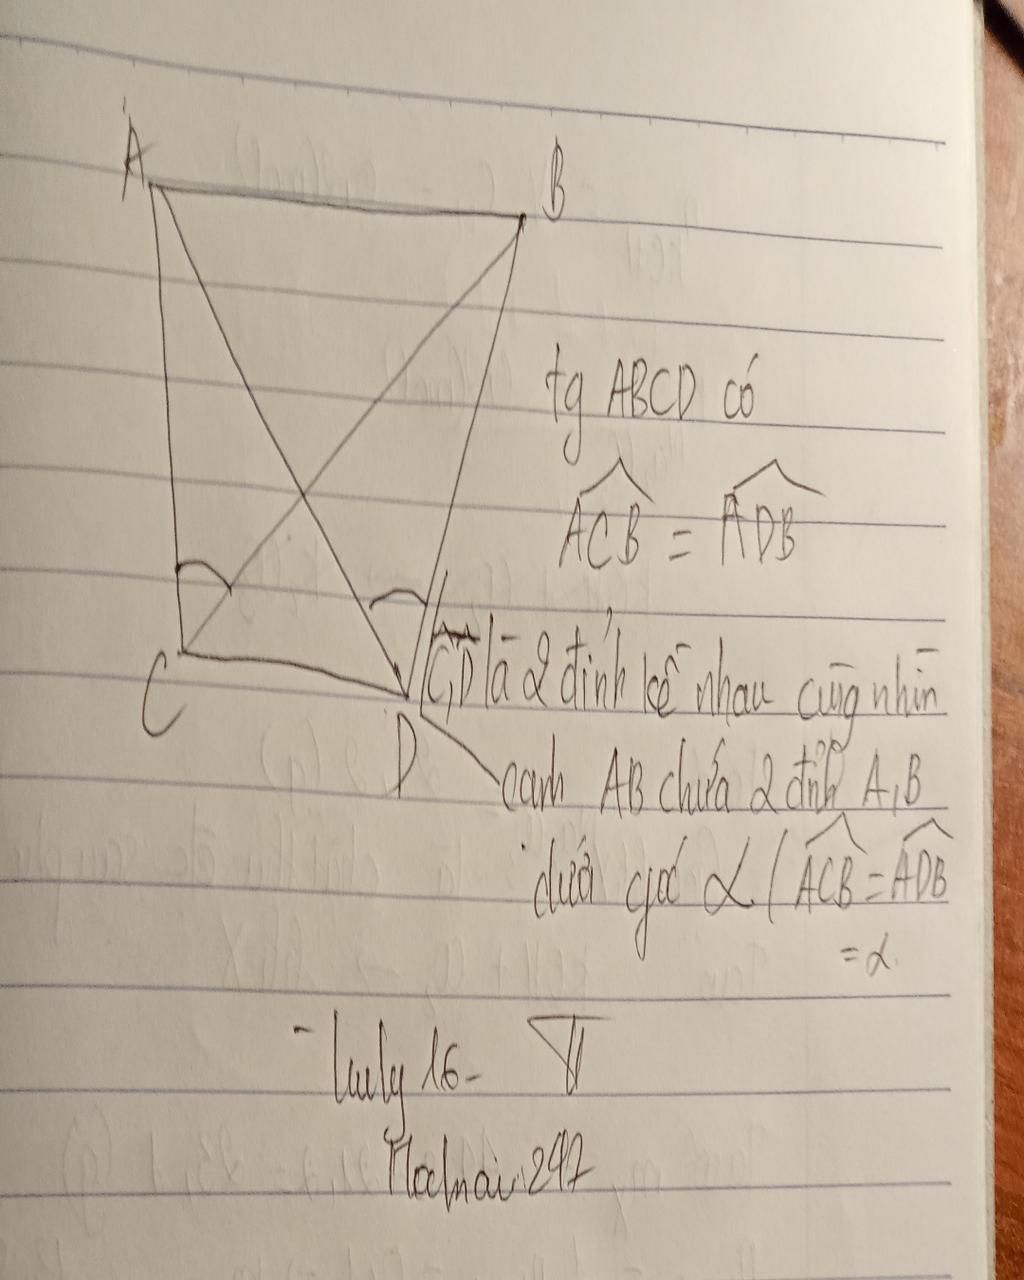 A
B
tg ABCD có
ACB = ADB
C
D
C,D là 2 đỉnh kề nhau cùng nhìn
cạnh AB chứa 2 đỉnh A,B
dưới góc α (ACB = ADB
= α.
16-
247